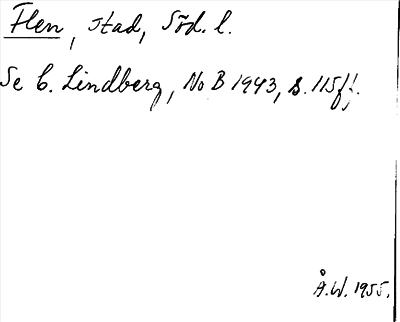 Flen, stad, Söd. l.
Se C. Lindberg, No B 1943, s. 115ff.
Å.W. 1955.